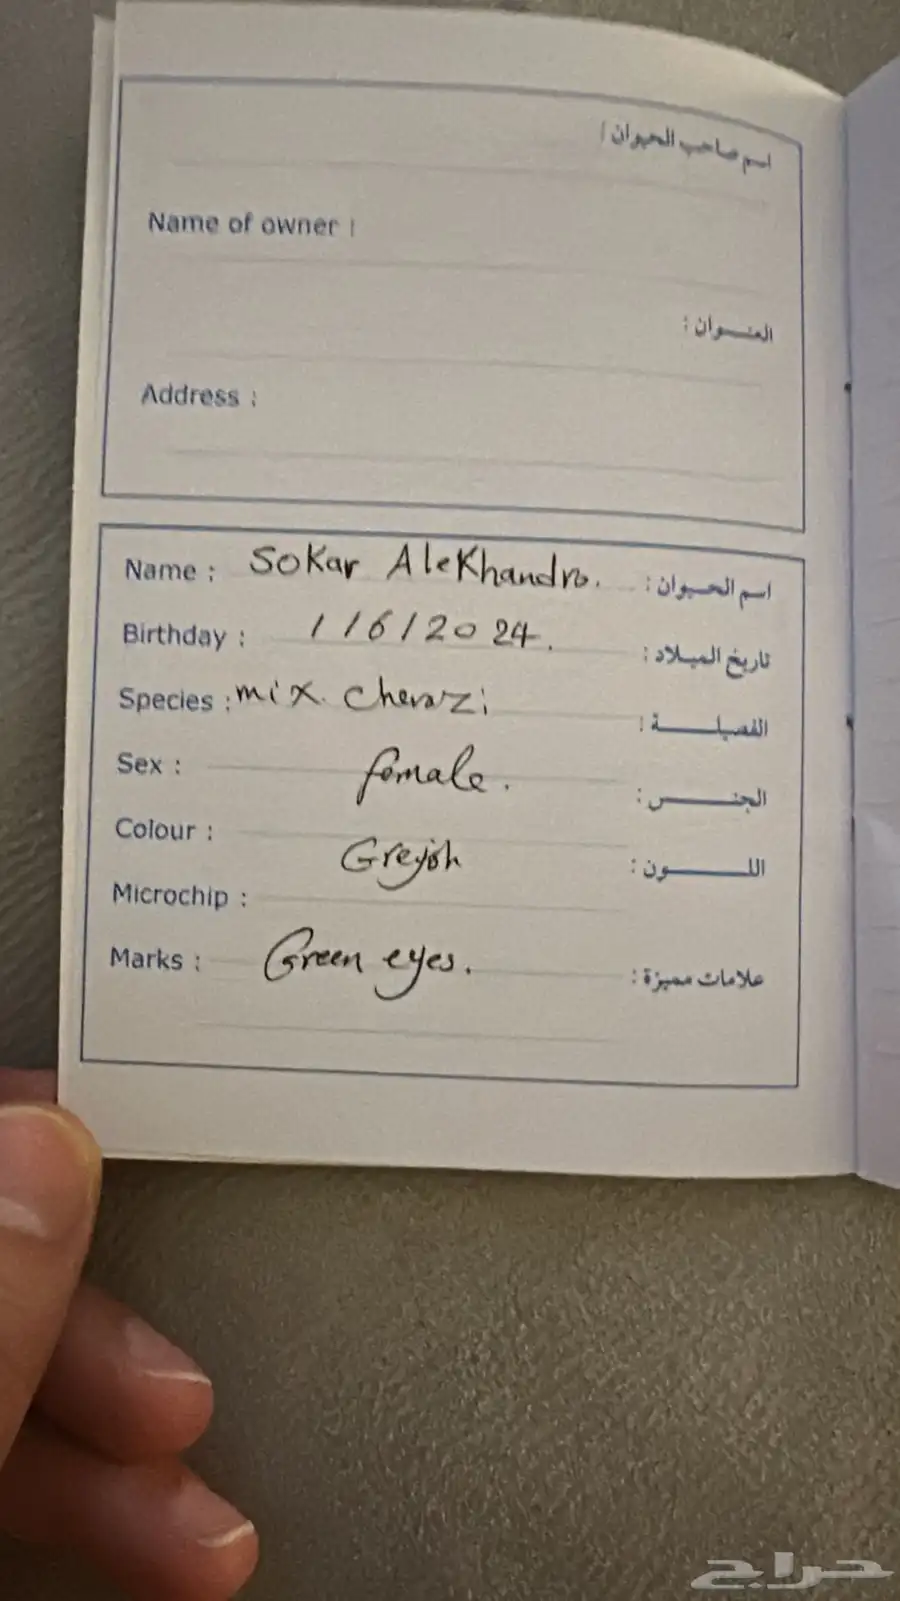 اسم صاحب الحيوان :
Name of owner :
العنـــوان :
Address :
Name : Sokar Alekhandro. اسم الحيوان :
Birthday : 1/6/2024. تاريخ الميلاد :
Species : mix. cherazi الفصيلـــــة :
Sex : female. الجنـــــس :
Colour : Greyish اللـــــون :
Microchip :
Marks : Green eyes. علامات مميزة :
حراج